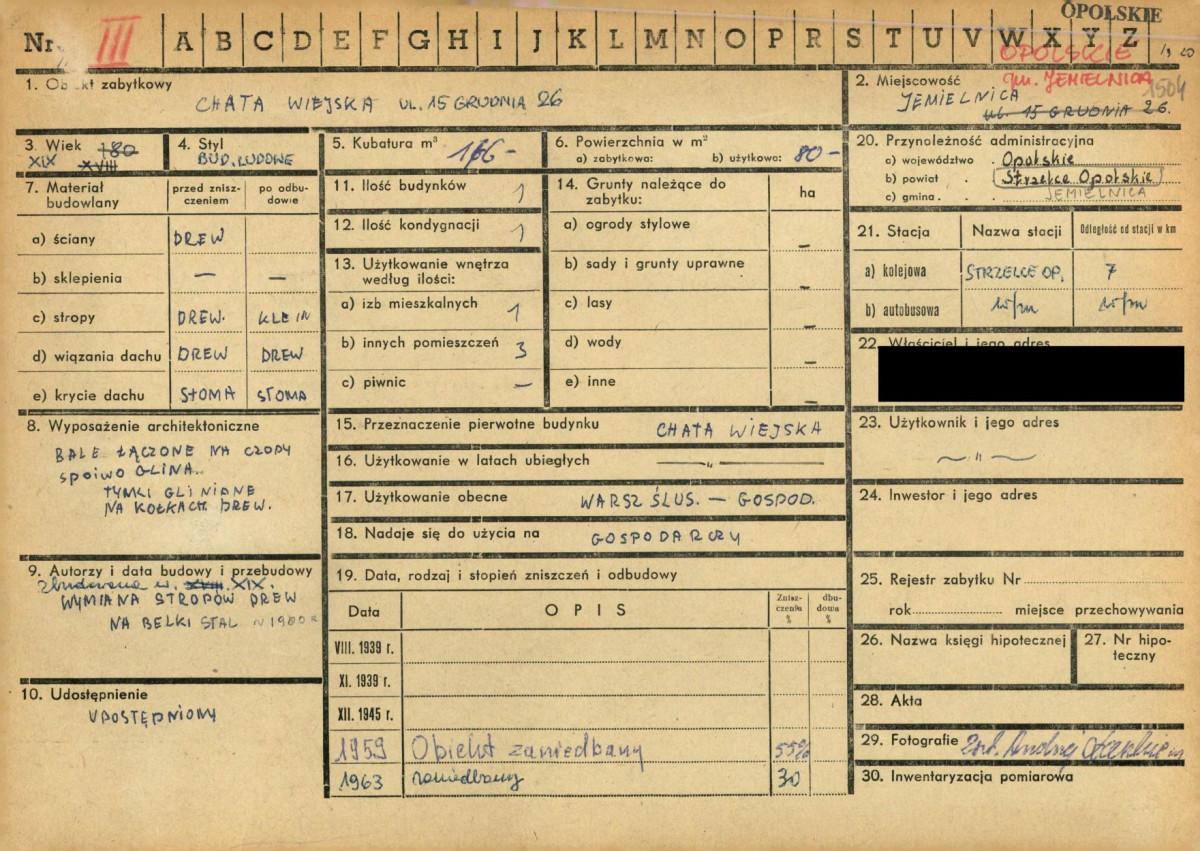 OPOLSKIE
Nr. III A B C D E F G H I J K L M N O P R S T U V W X Y Z
OPOLSKIE
gm. JEMIELNICA
1504
1. Obiekt zabytkowy
CHATA WIEJSKA UL. 15 GRUDNIA 26
2. Miejscowość
JEMIELNICA
ul. 15 GRUDNIA 26.
3. Wiek 180
XIX XVIII
4. Styl
BUD. LUDOWE
5. Kubatura m³ 166-
6. Powierzchnia w m²
a) zabytkowa: b) użytkowa: 80-
7. Materiał budowlany
przed znisz-
czeniem
po odbu-
dowie
a) ściany DREW
b) sklepienia — —
c) stropy DREW. KLEIN
d) wiązania dachu DREW DREW
e) krycie dachu SŁOMA SŁOMA
8. Wyposażenie architektoniczne
BALE ŁĄCZONE NA CZOPY
SPOIWO GLINA.
TYNKI GLINIANE
NA KOŁKACH DREW.
9. Autorzy i data budowy i przebudowy
Zbudowana w. XVIII. XIX.
WYMIANA STROPÓW DREW
NA BELKI STAL
10. Udostępnienie
UDOSTĘPNIONY
11. Ilość budynków 1
12. Ilość kondygnacji 1
13. Użytkowanie wnętrza
według ilości:
a) izb mieszkalnych 1
b) innych pomieszczeń 3
c) piwnic —
14. Grunty należące do
zabytku:
ha
a) ogrody stylowe —
b) sady i grunty uprawne —
c) lasy —
d) wody —
e) inne —
15. Przeznaczenie pierwotne budynku CHATA WIEJSKA
16. Użytkowanie w latach ubiegłych —"—
17. Użytkowanie obecne WARSZ ŚLUS. — GOSPOD.
18. Nadaje się do użycia na GOSPODARCZY
19. Data, rodzaj i stopień zniszczeń i odbudowy
Data OPIS
Znisz-
czenia
%
dbu-
dowa
%
VIII. 1939 r.
XI. 1939 r.
XII. 1945 r.
1959 Obiekt zaniedbany 55%
1963 zaniedbany 30
20. Przynależność administracyjna
a) województwo . Opolskie
b) powiat . Strzelce Opolskie
c) gmina . . JEMIELNICA
21. Stacja Nazwa stacji Odległość od stacji w km
a) kolejowa STRZELCE OP. 7
b) autobusowa w/m w/m
22. Właściciel i jego adres
23. Użytkownik i jego adres
— " —
24. Inwestor i jego adres
25. Rejestr zabytku Nr
rok miejsce przechowywania
26. Nazwa księgi hipotecznej
27. Nr hipo-
teczny
28. Akta
29. Fotografie Andrzej
30. Inwentaryzacja pomiarowa